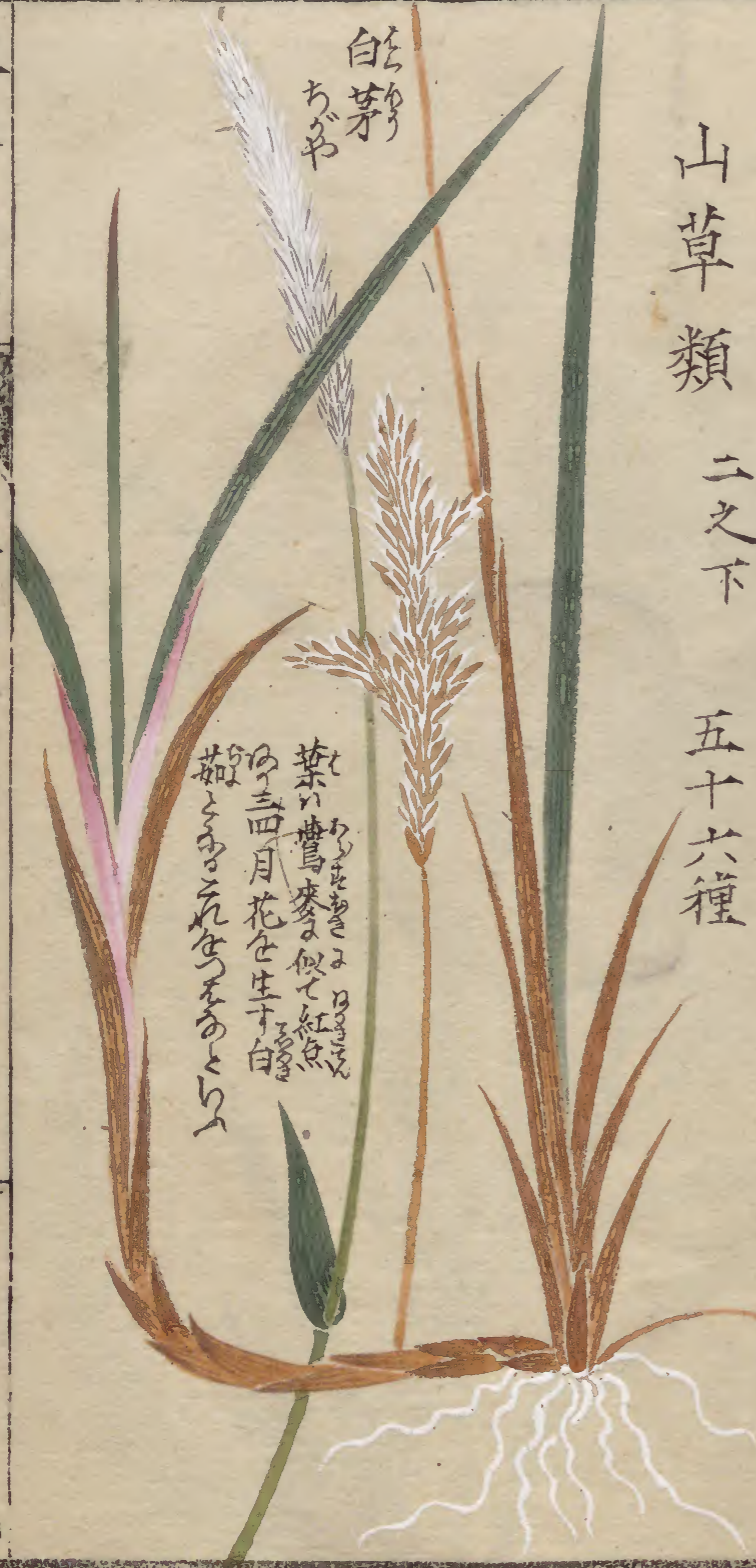 山草類 二之下 五十六種
白茅
ちがや
葉ハ鷰麥に似て紅点
あり三四月花を生す白
茹となるこれをつはなといふ